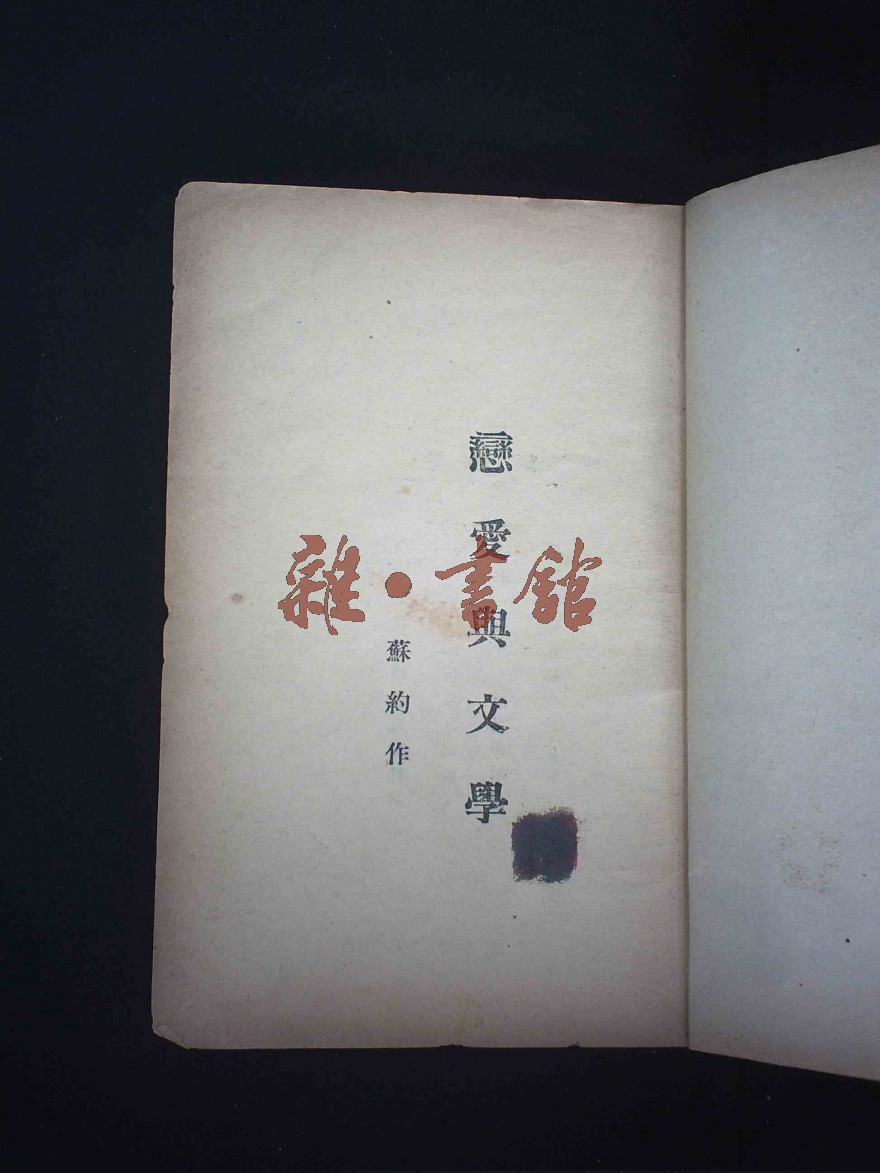 戀愛與文學
蘇約作
雜·書館